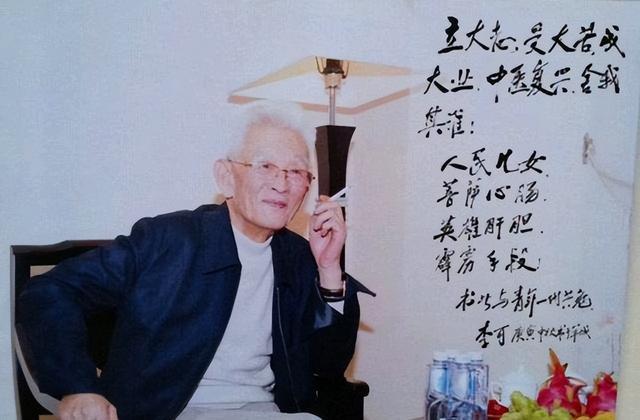 立大志,受大苦,成
大业.中医复兴,舍我
其谁!
人民儿女,
菩萨心肠,
英雄肝胆,
霹雳手段!
与青年一代共勉
李可 庚寅中秋书于羊城